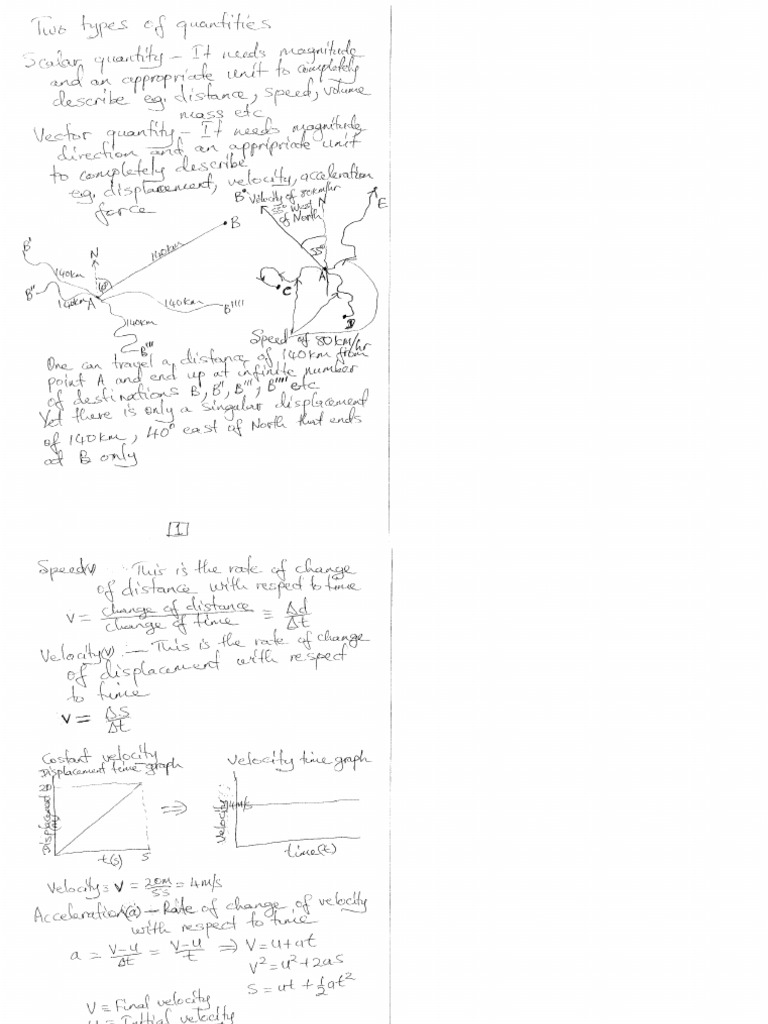 Two types of quantities
Scalar quantity – It needs magnitude
and an appropriate unit to completely
describe eg. distance, speed, volume
mass etc
Vector quantity – It needs magnitude
direction and an appripriate unit
to completely describe
eg. displacement, velocity, acceleration
force
B' Velocity of 80km/hr
55° West
of North
N
E
55°
A
C
D
Speed of 80km/hr
B
140km
N
40°
A
B'
140km
B''
140km
140km
B''''
140km
B'''
One can travel a distance of 140km from
point A and end up at infinite number
of destinations B, B'', B''', B'''' etc
Yet there is only a singular displacement
of 140km, 40° east of North that ends
at B only
1
Speed(v) This is the rate of change
of distance with respect to time
v = change of distance / change of time ≡ Δd/Δt
Velocity(v) – This is the rate of change
of displacement with respect
to time
v = ΔS/Δt
Costant velocity
Displacement time graph
20
Displacement (m)
t(s)
5
⇒
Velocity time graph
4m/s
Velocity
time(t)
Velocity = v = 20m/5s = 4m/s
Acceleration(a) – Rate of change of velocity
with respect to time
a = v-u/Δt = v-u/t ⇒ V = u + at
V² = u² + 2as
S = ut + ½at²
V ≡ Final velocity
u ≡ Initial velocity